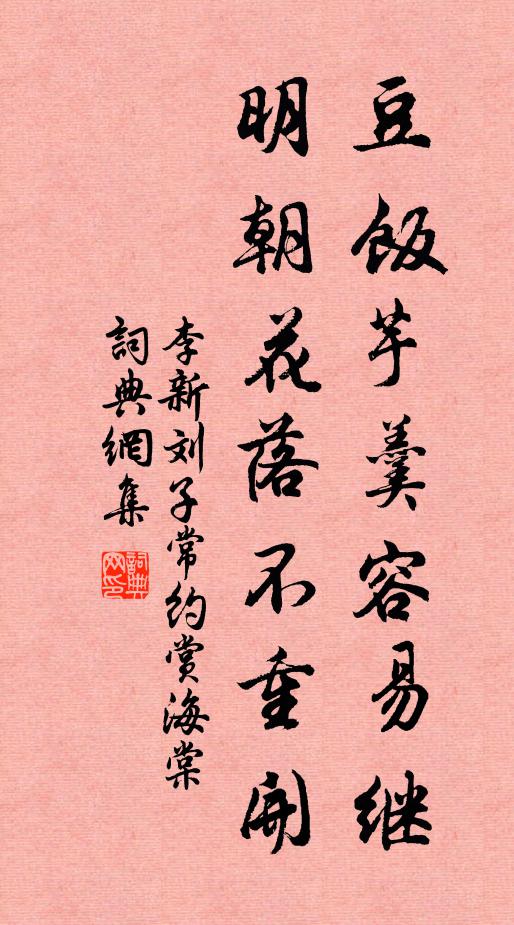 豆飯芋羹容易继
明朝花落不重開
李新刘子常约赏海棠
詞典網集
詞典网印